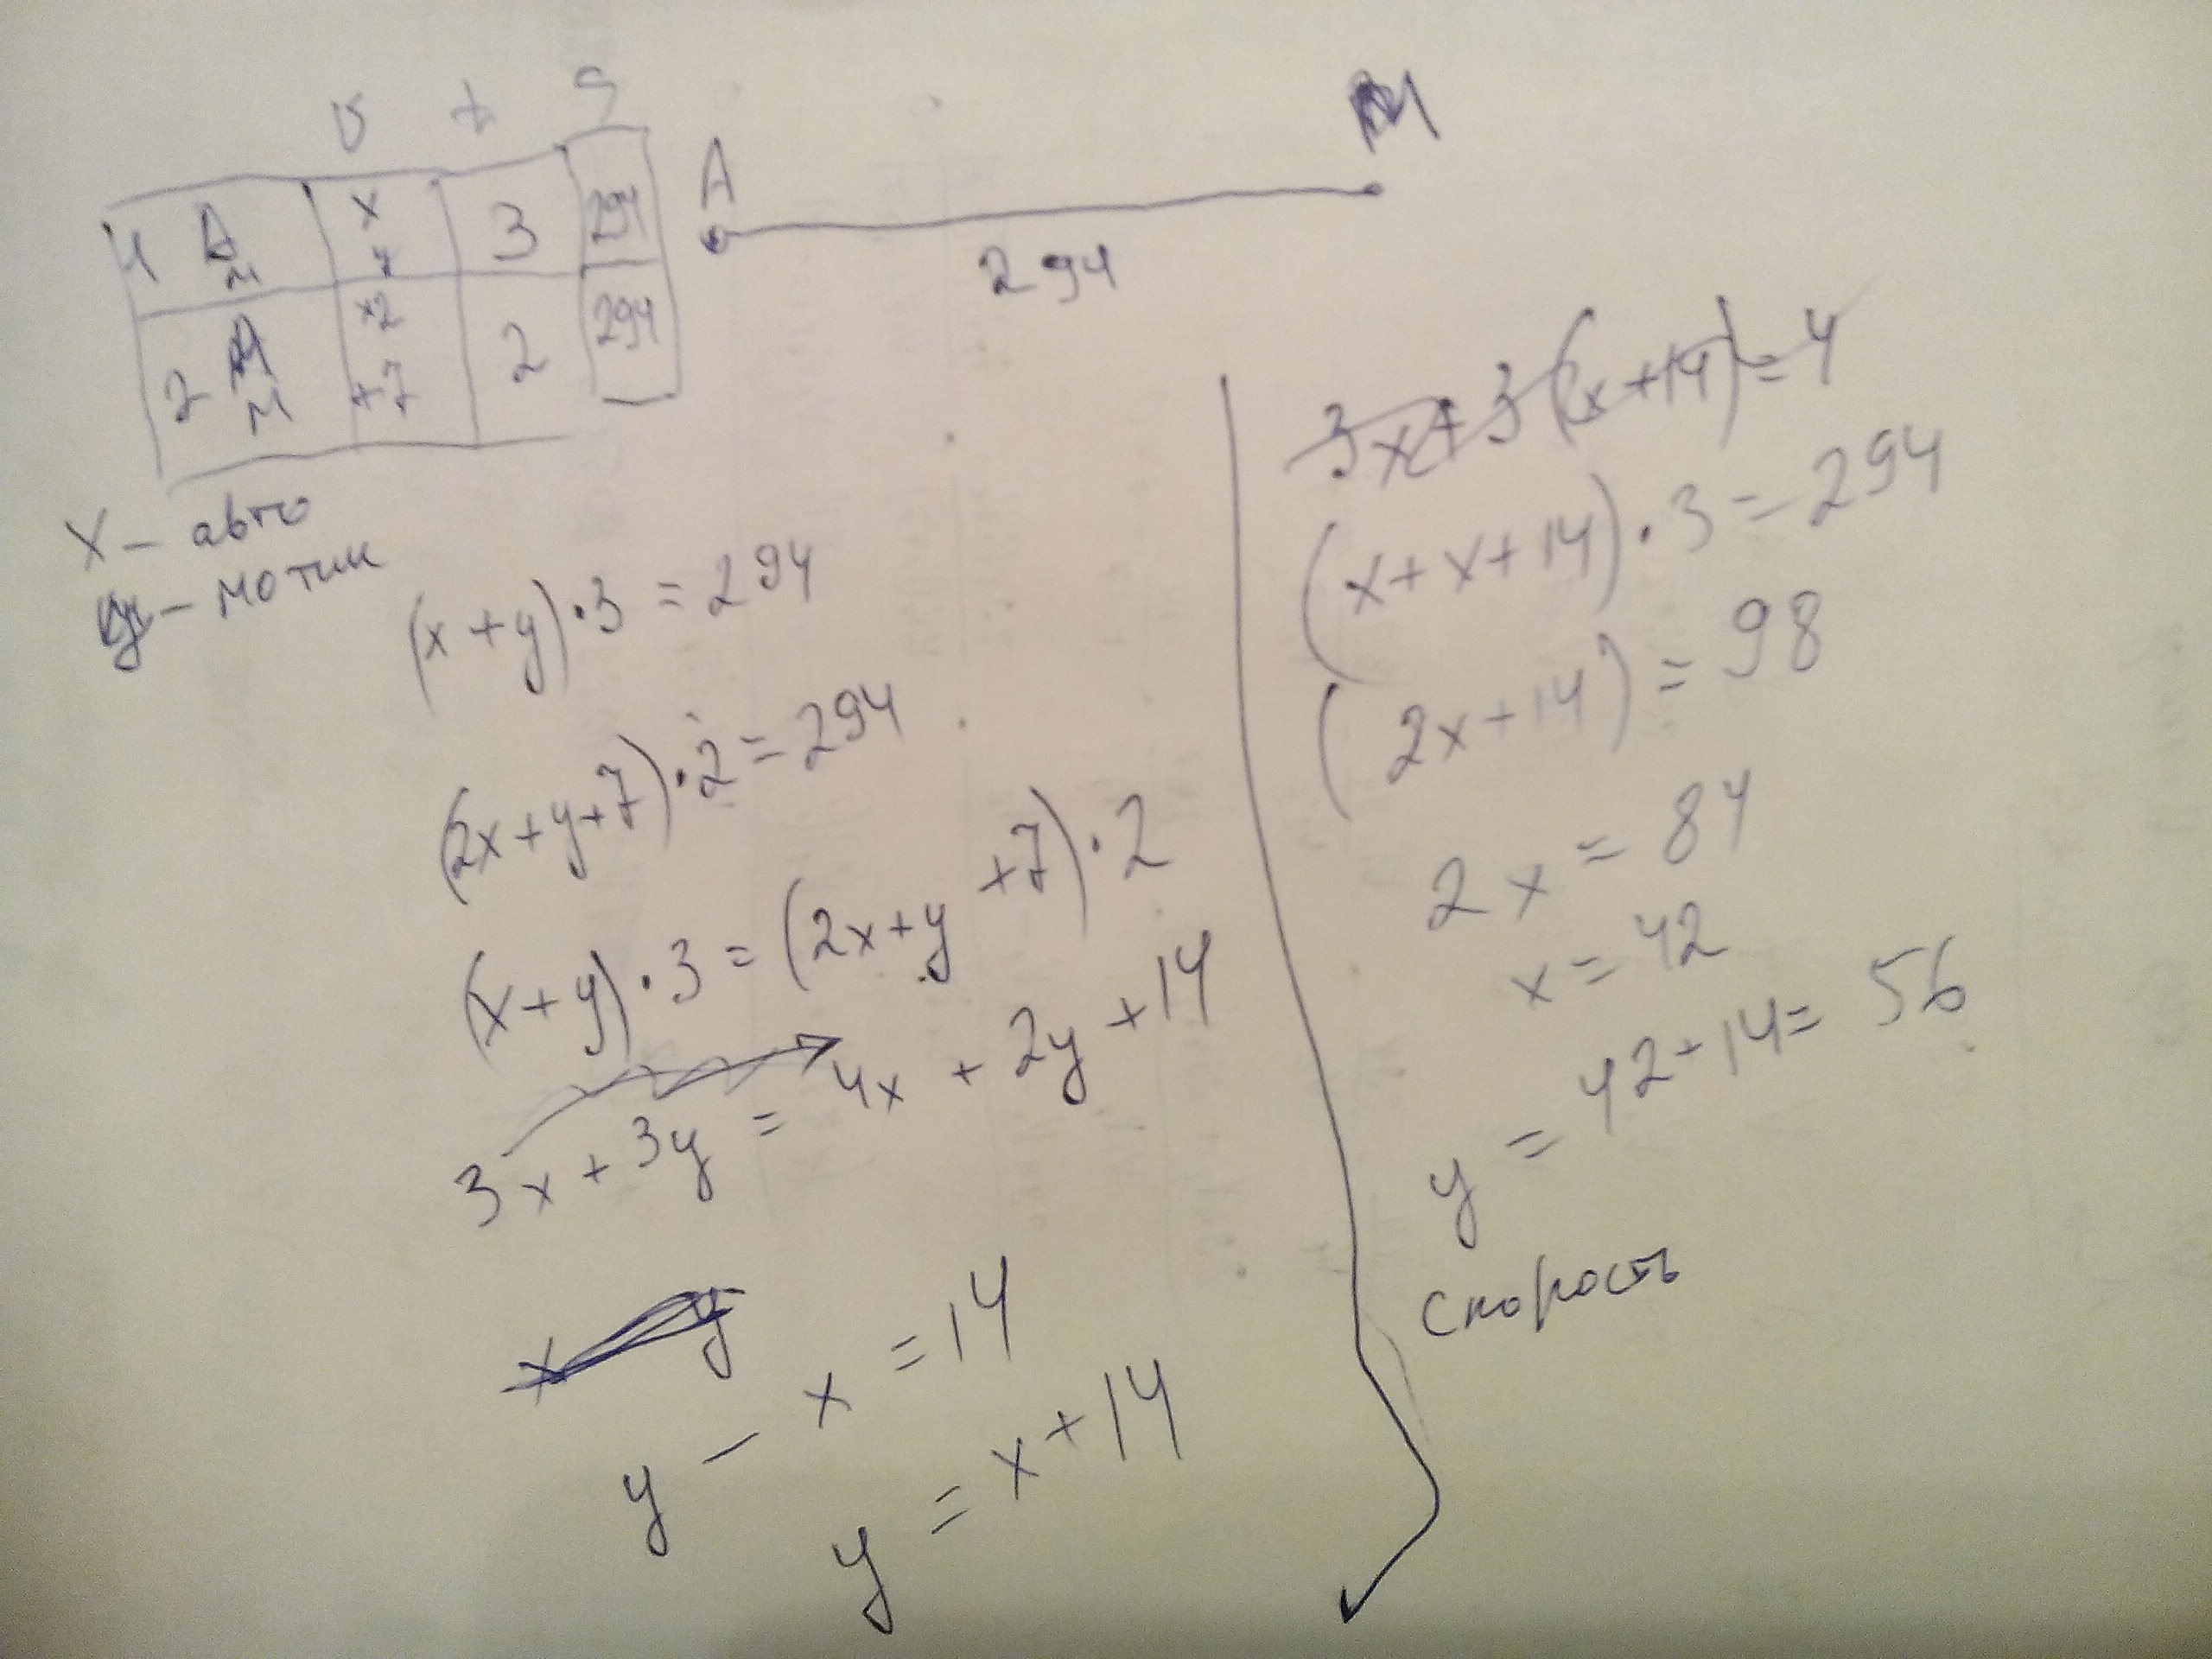 υ t S
1 А м x y 3 294
2 А м x2 +7 2 294
А М
294
x – авто
y – мотик
(x + y) · 3 = 294
(2x + y + 7) · 2 = 294
(x + y) · 3 = (2x + y + 7) · 2
3x + 3y = 4x + 2y + 14
x y
y – x = 14
y = x + 14
3x + 3(x + 14) = 4
(x + x + 14) · 3 = 294
(2x + 14) = 98
2x = 84
x = 42
y = 42 + 14 = 56
скорость